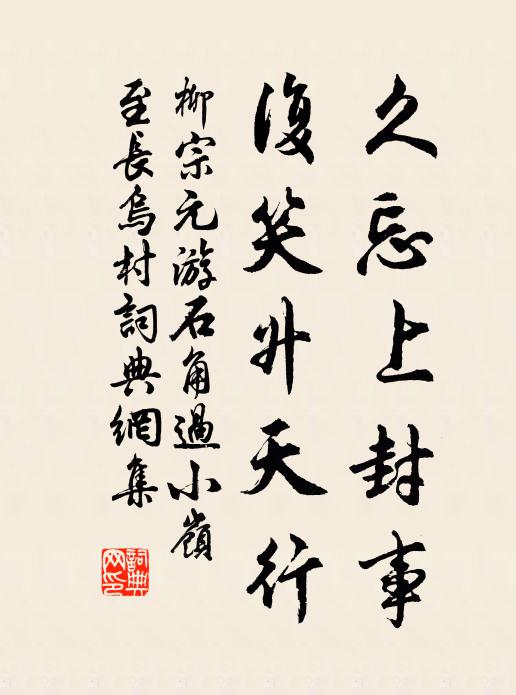 久忘上封事
復笑升天行
柳宗元游石角過小嶺
至長烏村詞典網集
詞典網印